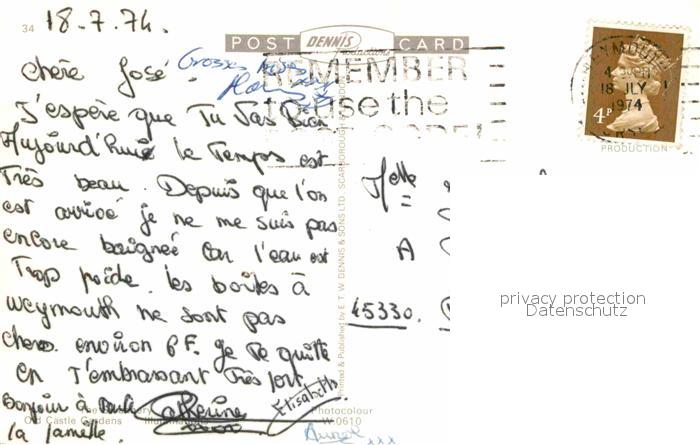 34
18.7.74.
POST DENNIS productions CARD
Chère José. Grosses bises
REMEMBER
to use the
WEYMOUTH
18 JLY
1974
4P
PRODUCTION
J'espère que Tu Vas Bien
Aujourd'huie le Temps est
Très beau. Depuis que l'on
est arrivé je ne me suis pas
encore baignée car l'eau est
Trop froide. les boîtes à
weymouth ne sont pas
chers. environ 8F. je te quitte
en T'embrassant Très fort.
bonjour à toute
la famille.
Catherine
Elisabeth
xxx
Melle
A
45330.
Printed & Published by E.T.W. DENNIS & SONS LTD. SCARBOROUGH
Old Castle Gardens
Photocolour
W.0610
privacy protection
Datenschutz